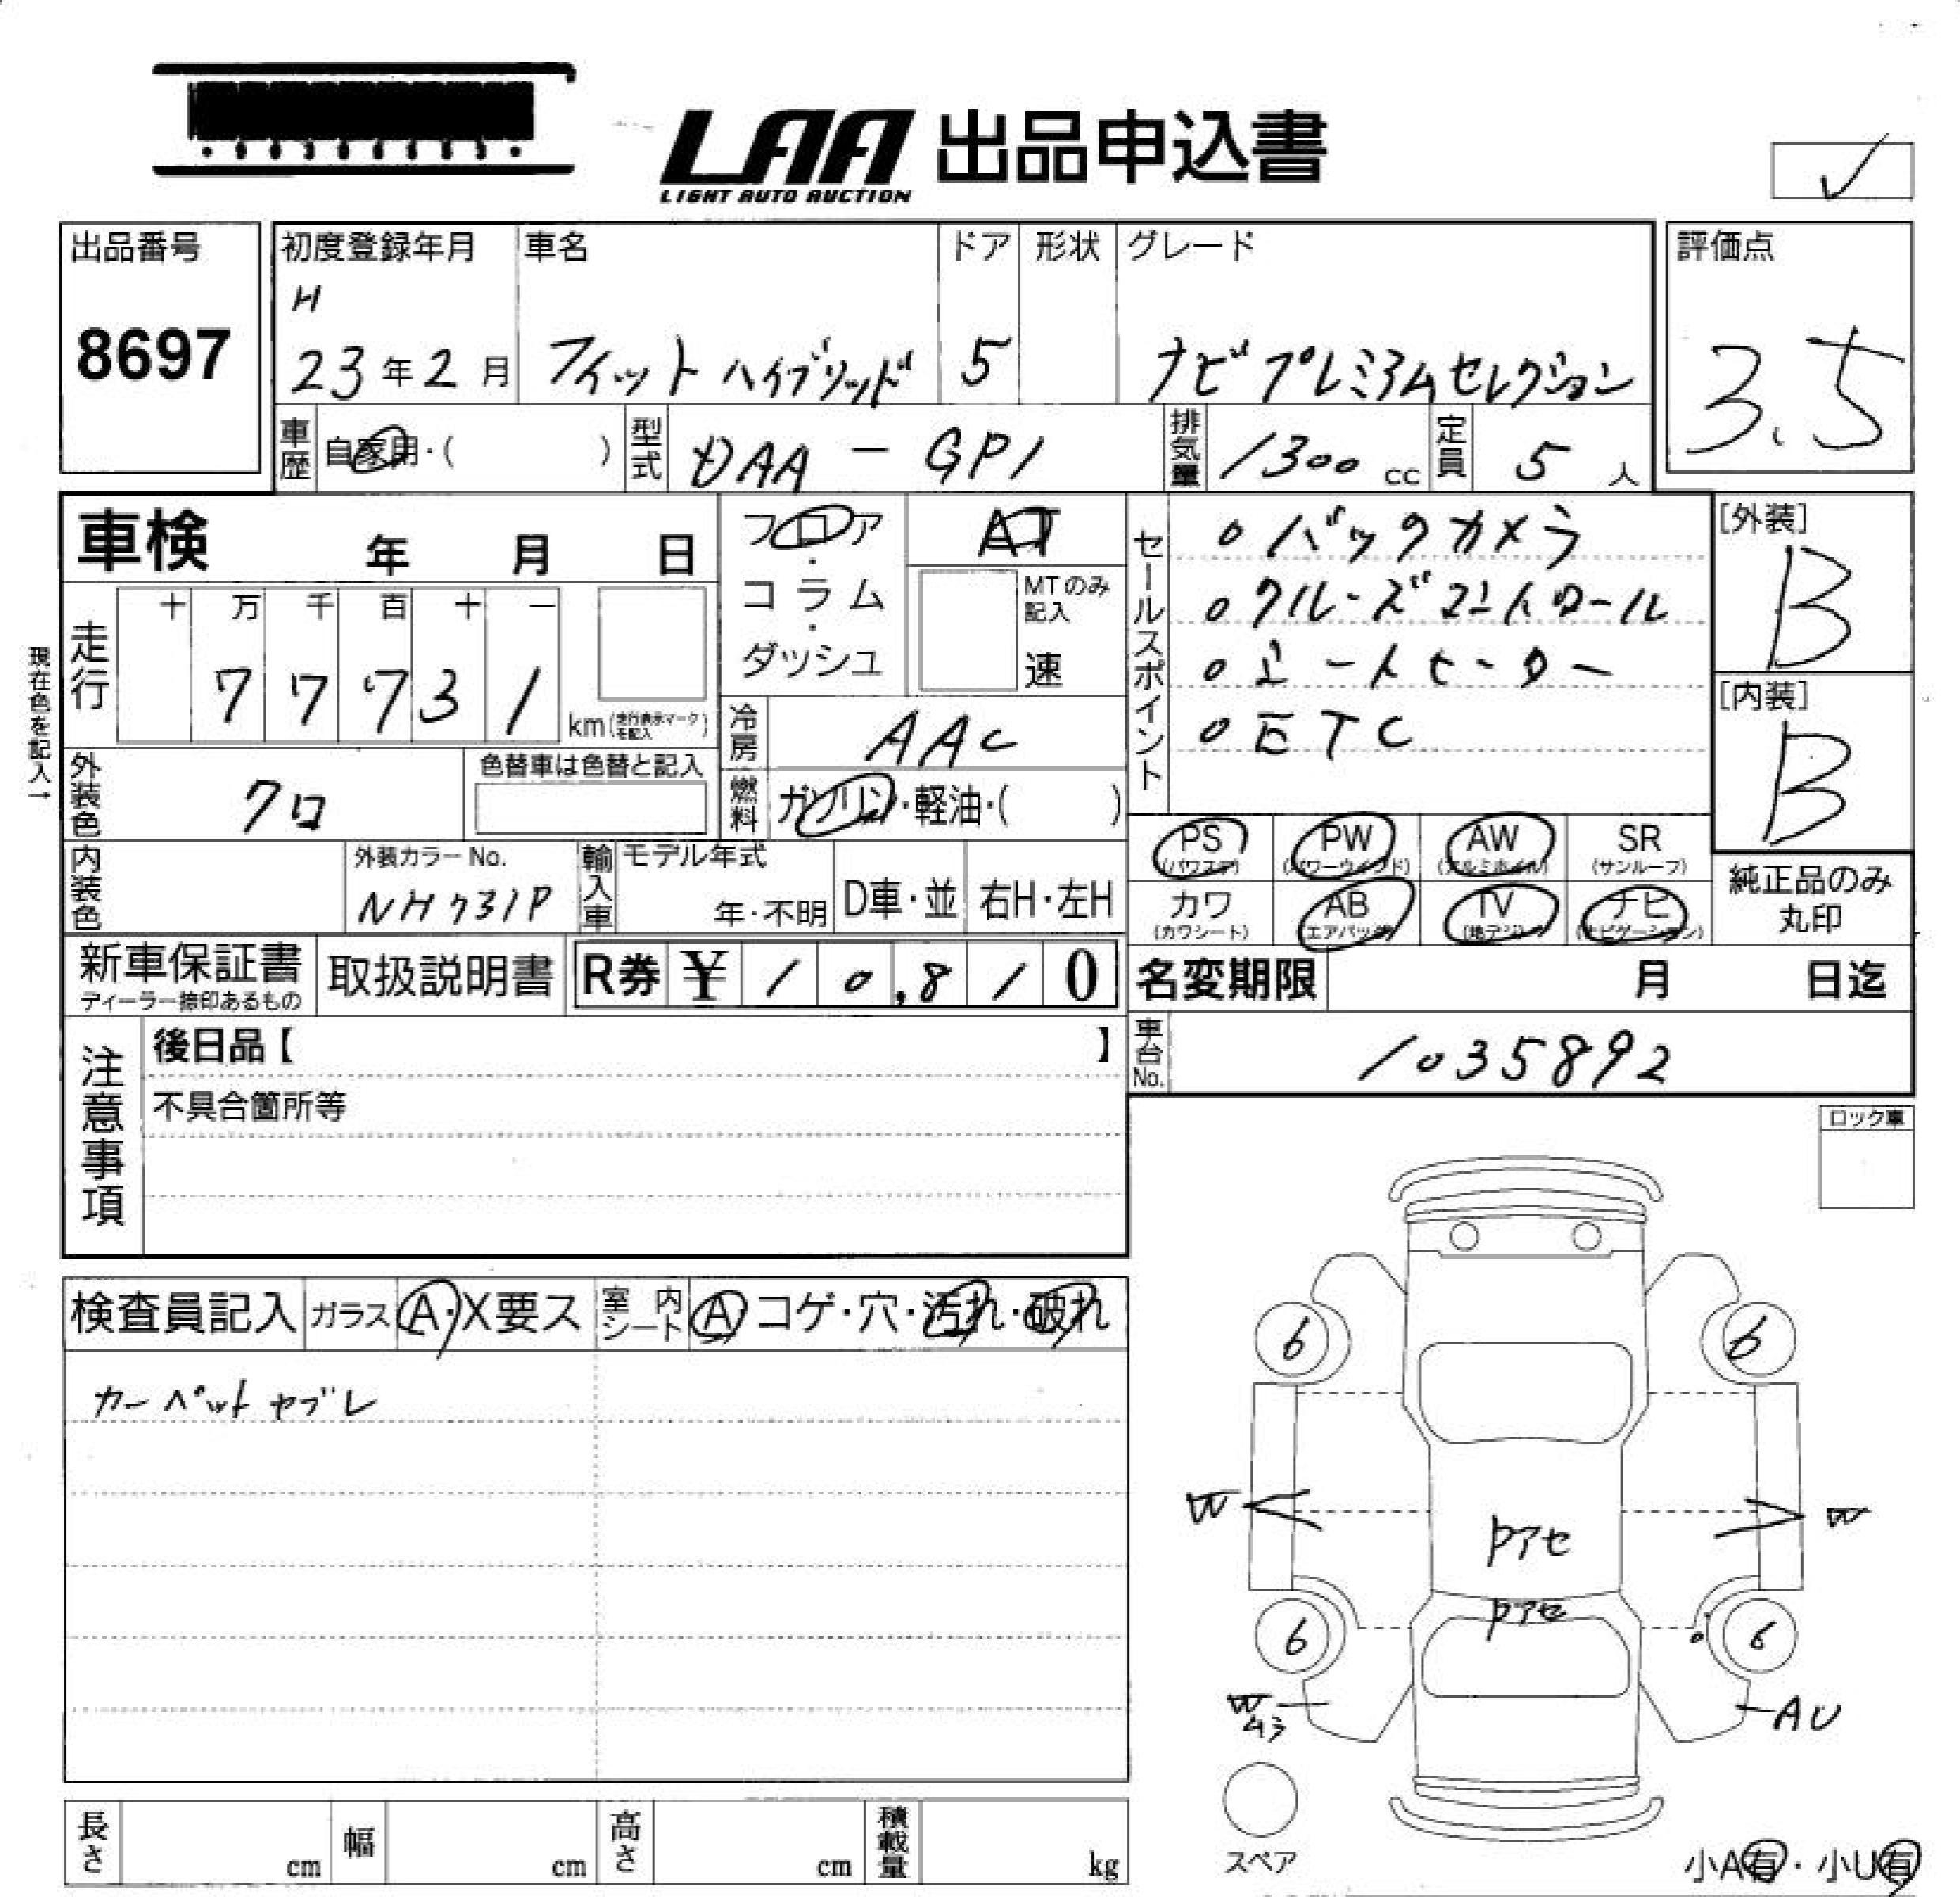 LAA 出品申込書
LIGHT AUTO AUCTION
✓
出品番号
8697
初度登録年月
H
23年2月
車名
フィットハイブリッド
ドア
5
形状
グレード
ナビプレミアムセレクション
評価点
3.5
車歴 自家用・( )
型式 DAA-GP1
排気量 1300cc
定員 5人
車検 年 月 日
フロア・コラム・ダッシュ
AT
MTのみ記入
速
セールスポイント
○バックカメラ
○クルーズコントロール
○シートヒーター
○ETC
[外装]
B
[内装]
B
現在色を記入→
走行 十 万 千 百 十 一
77731 km(走行表示マークを記入)
冷房 AAC
外装色 クロ
色替車は色替と記入
燃料 ガソリン・軽油・( )
PS (パワステ)
PW (パワーウインド)
AW (アルミホイル)
SR (サンルーフ)
カワ (カワシート)
AB (エアバック)
TV (地デジ)
ナビ (ナビゲーション)
純正品のみ丸印
内装色
外装カラーNo.
NH731P
輸入車 モデル年式
年・不明
D車・並
右H・左H
新車保証書
ディーラー捺印あるもの
取扱説明書
R券 ¥10,810
名変期限 月 日迄
注意事項
後日品【 】
不具合箇所等
車台No. 1035892
ロック車
検査員記入 ガラス A・X要ス 室内シート A コゲ・穴・汚れ・破れ
カーペットヤブレ
6 6
W W
Pアセ
Pアセ
6 6
W
ムラ
AU
スペア
長さ cm 幅 cm 高さ cm 積載量 kg
小A有・小U有